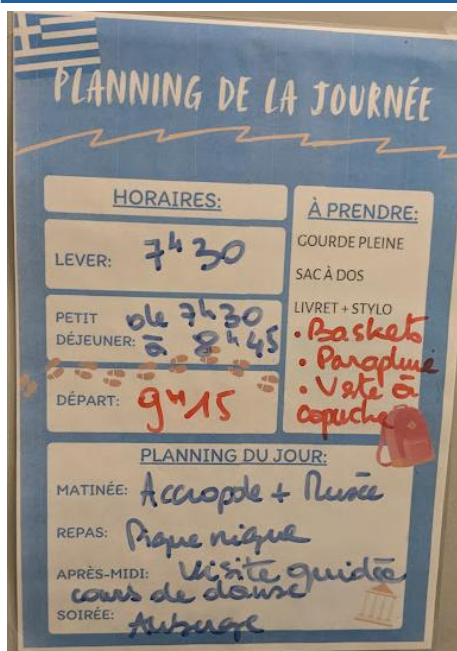 PLANNING DE LA JOURNÉE
HORAIRES:
LEVER: 7h30
PETIT DÉJEUNER: de 7h30
à 8h45
DÉPART: 9h15
À PRENDRE:
GOURDE PLEINE
SAC À DOS
LIVRET + STYLO
• Baskets
• Parapluie
• Veste à
capuche
PLANNING DU JOUR:
MATINÉE: Accropole + Musée
REPAS: Pique nique
APRÈS-MIDI: Visite guidée
cours de danse
SOIRÉE: Auberge